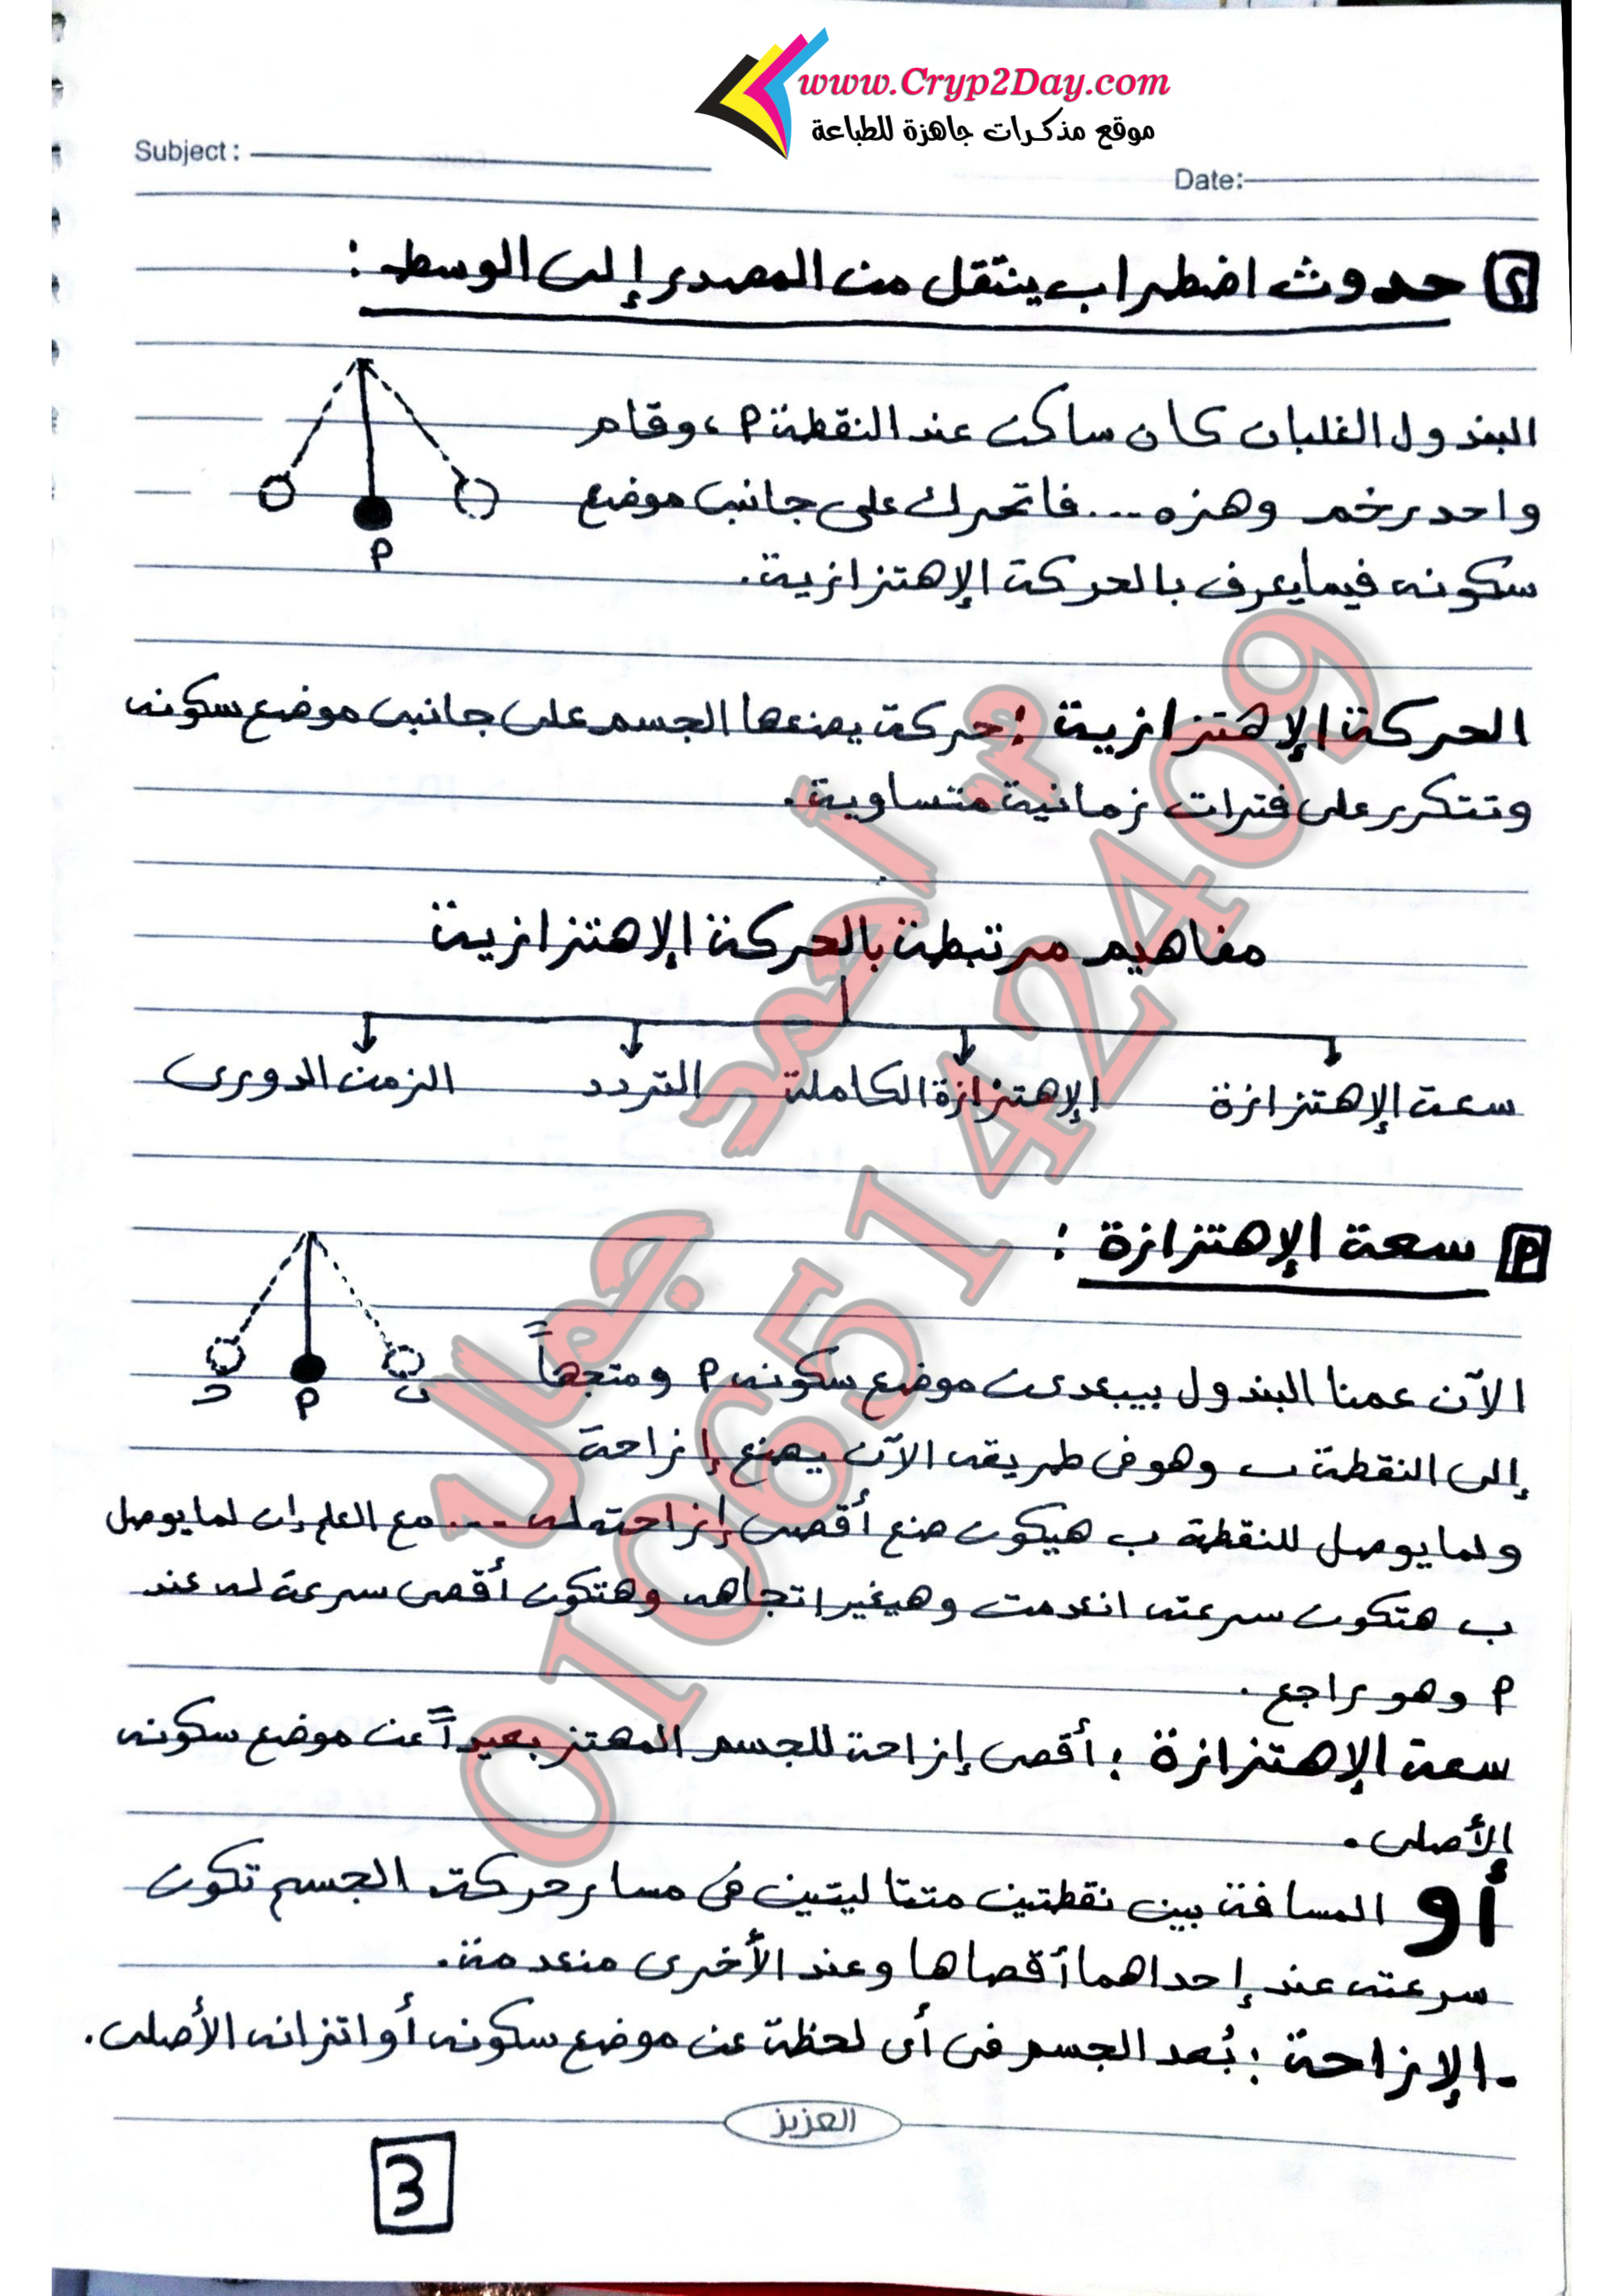 www.Cryp2Day.com
موقع مذكرات جاهزة للطباعة
Subject :
Date:
٢ حدوث اضطراب ينتقل من المصدر إلى الوسط :
البندول الغلبان كان ساكن عند النقطة م ، وقام
واحد رخم وهزه ... فاتحرك على جانبى موضع
سكونه فيما يعرف بالحركة الإهتزازية .
م
الحركة الإهتزازية : حركة يصنعها الجسم على جانبى موضع سكونه
وتتكرر على فترات زمانية متساوية .
مفاهيم مرتبطة بالحركة الإهتزازية
سعة الإهتزازة الإهتزازة الكاملة التردد الزمن الدورى
م سعة الإهتزازة :
ح م ب
الآن عمنا البندول بيبعد عن موضع سكونه م ومتجهاً
إلى النقطة ب وهو فى طريقه الآن يصنع إزاحة
ولما يوصل للنقطة ب هيكون صنع أقصى إزاحته له ... مع العلم إن لما يوصل
ب هتكون سرعته انعدمت وهيغير اتجاهه وهتكون أقصى سرعة له عند
م وهو راجع .
سعة الإهتزازة : أقصى إزاحة للجسم المهتز بعيداً عن موضع سكونه
الأصلى .
أو المسافة بين نقطتين متتاليتين فى مسار حركة الجسم تكون
سرعته عند إحداهما أقصاها وعند الأخرى منعدمة .
- الإزاحة : بُعد الجسم فى أى لحظة عن موضع سكونه أو اتزانه الأصلى .
العزيز
3
م / أحمد جمال
01065142409